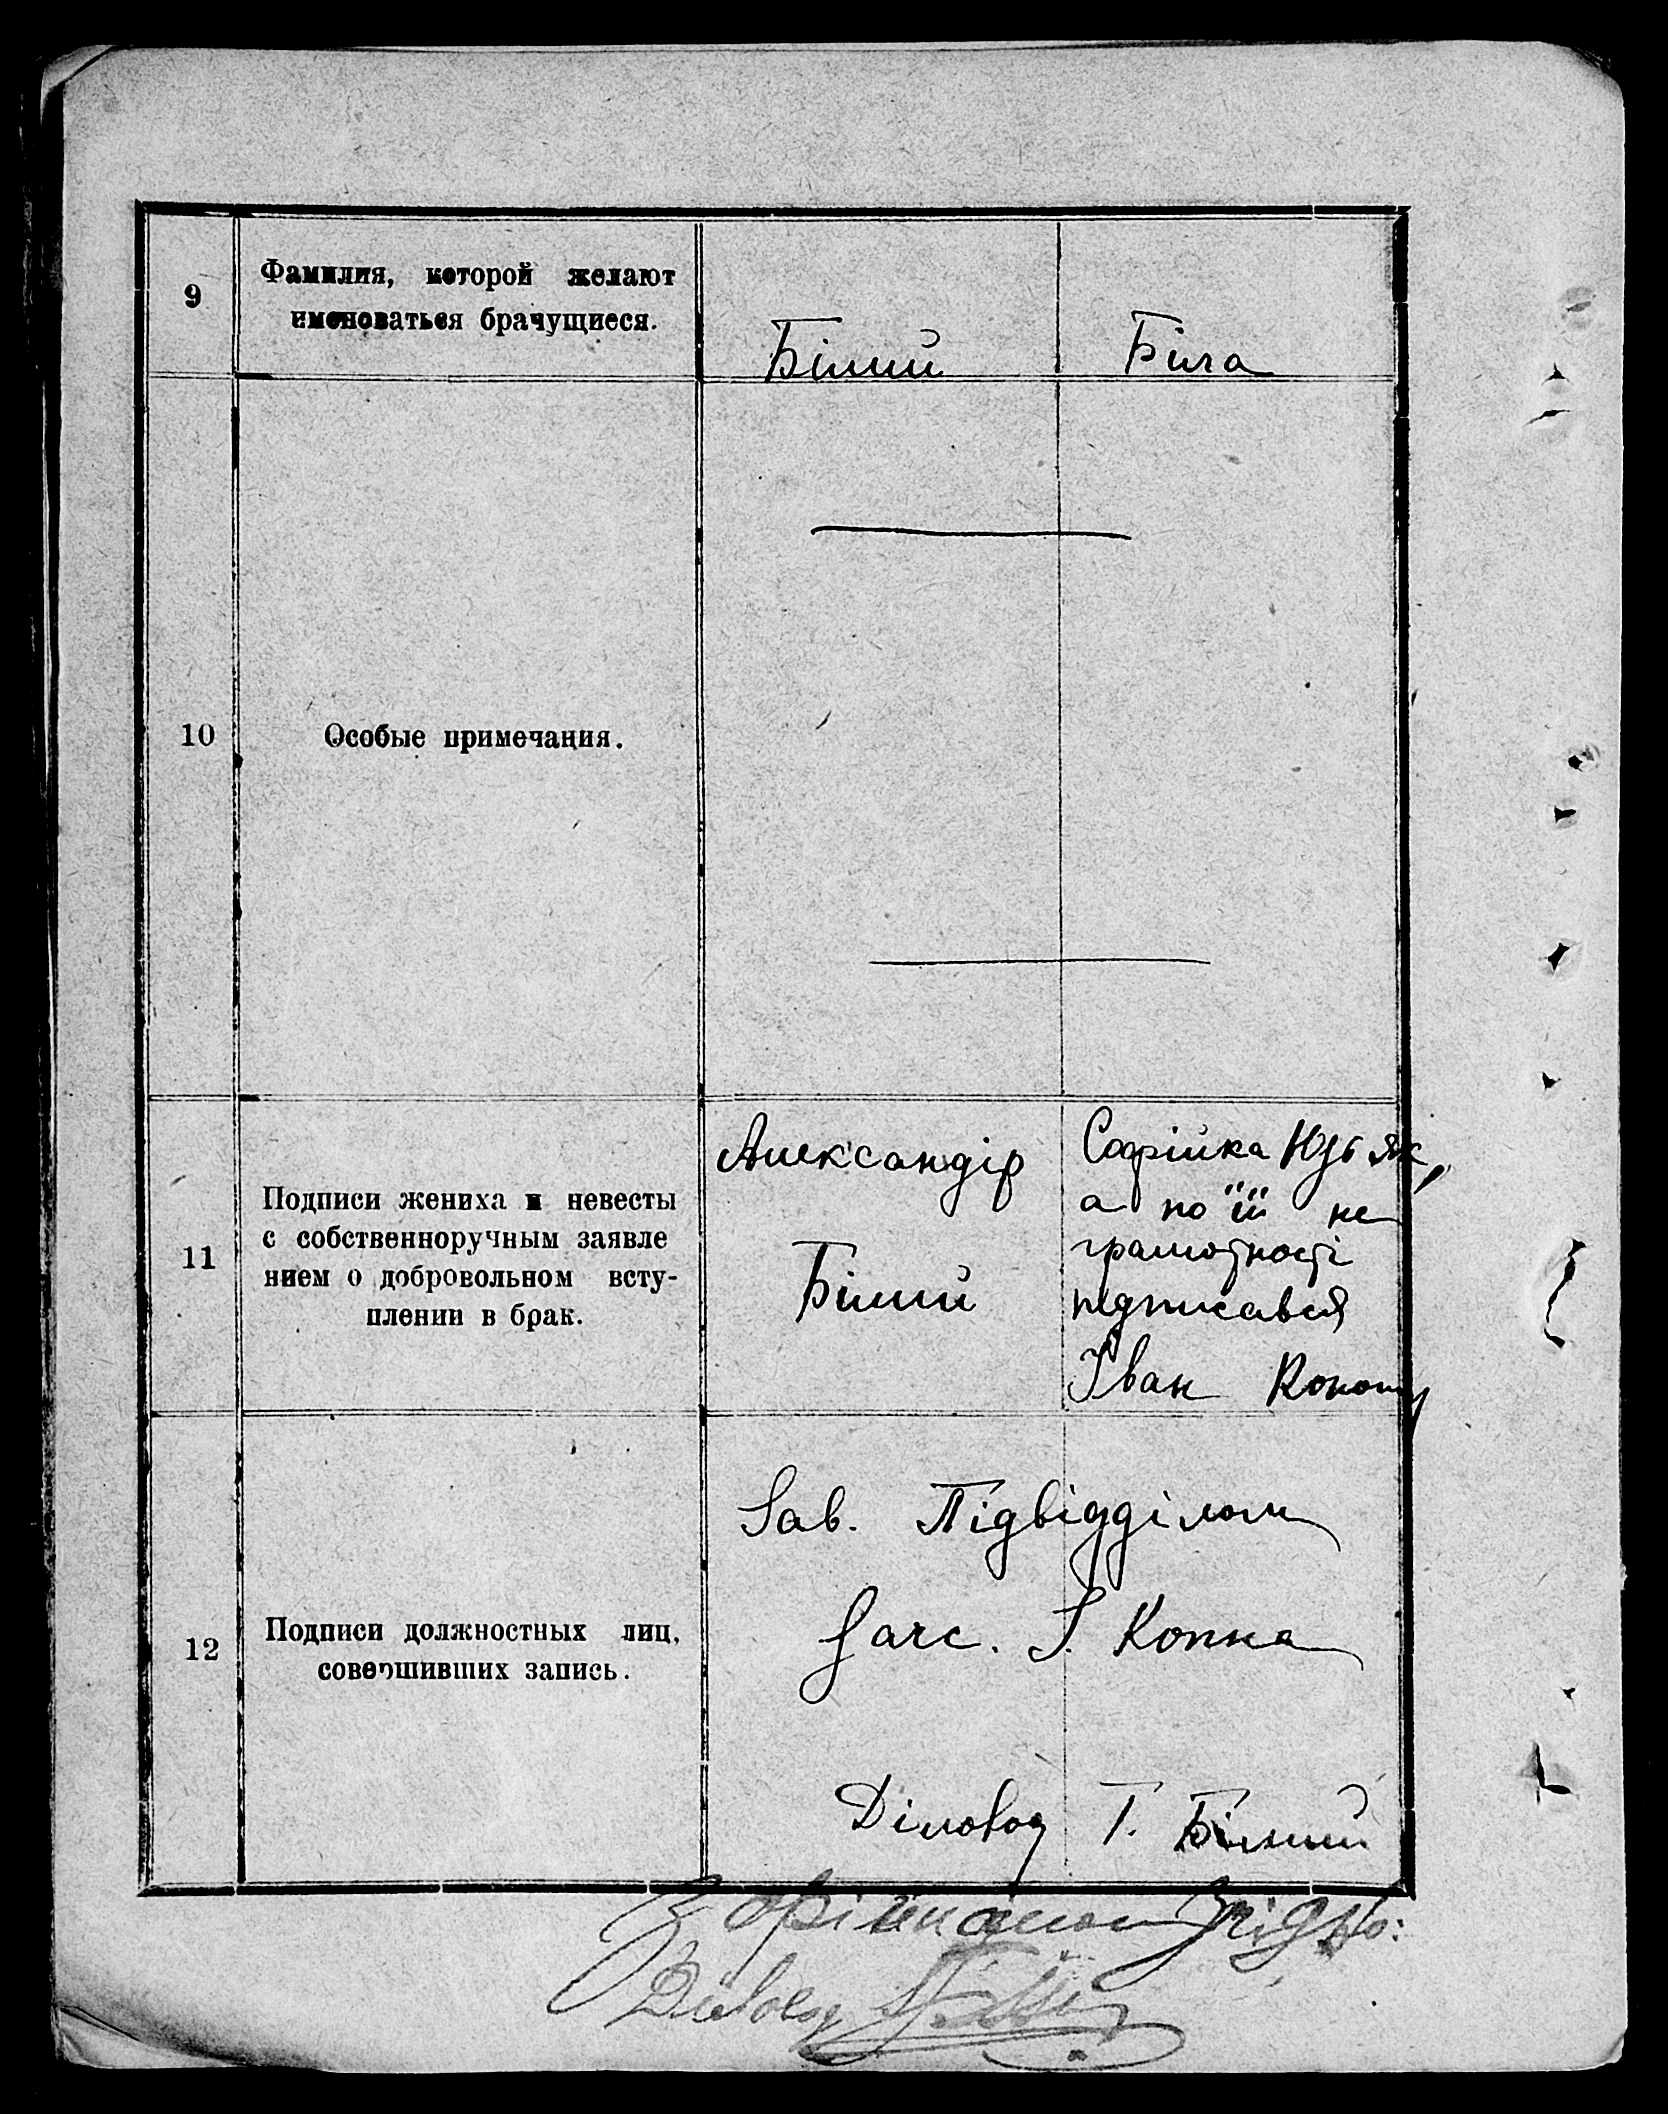 9
Фамилия, которой желают
именоваться брачущиеся.
Білий
Біла
10
Особые примечания.
11
Подписи жениха и невесты
с собственноручным заявле
нием о добровольном всту-
плении в брак.
Александір
Білий
Софійка
а по її не
грамотності
підписався
Іван
12
Подписи должностных лиц,
совершивших запись.
Зав. Підвідділом
Загс. І. Копка
Діловод Г. Білий
З орігіналом згідно:
Діловод